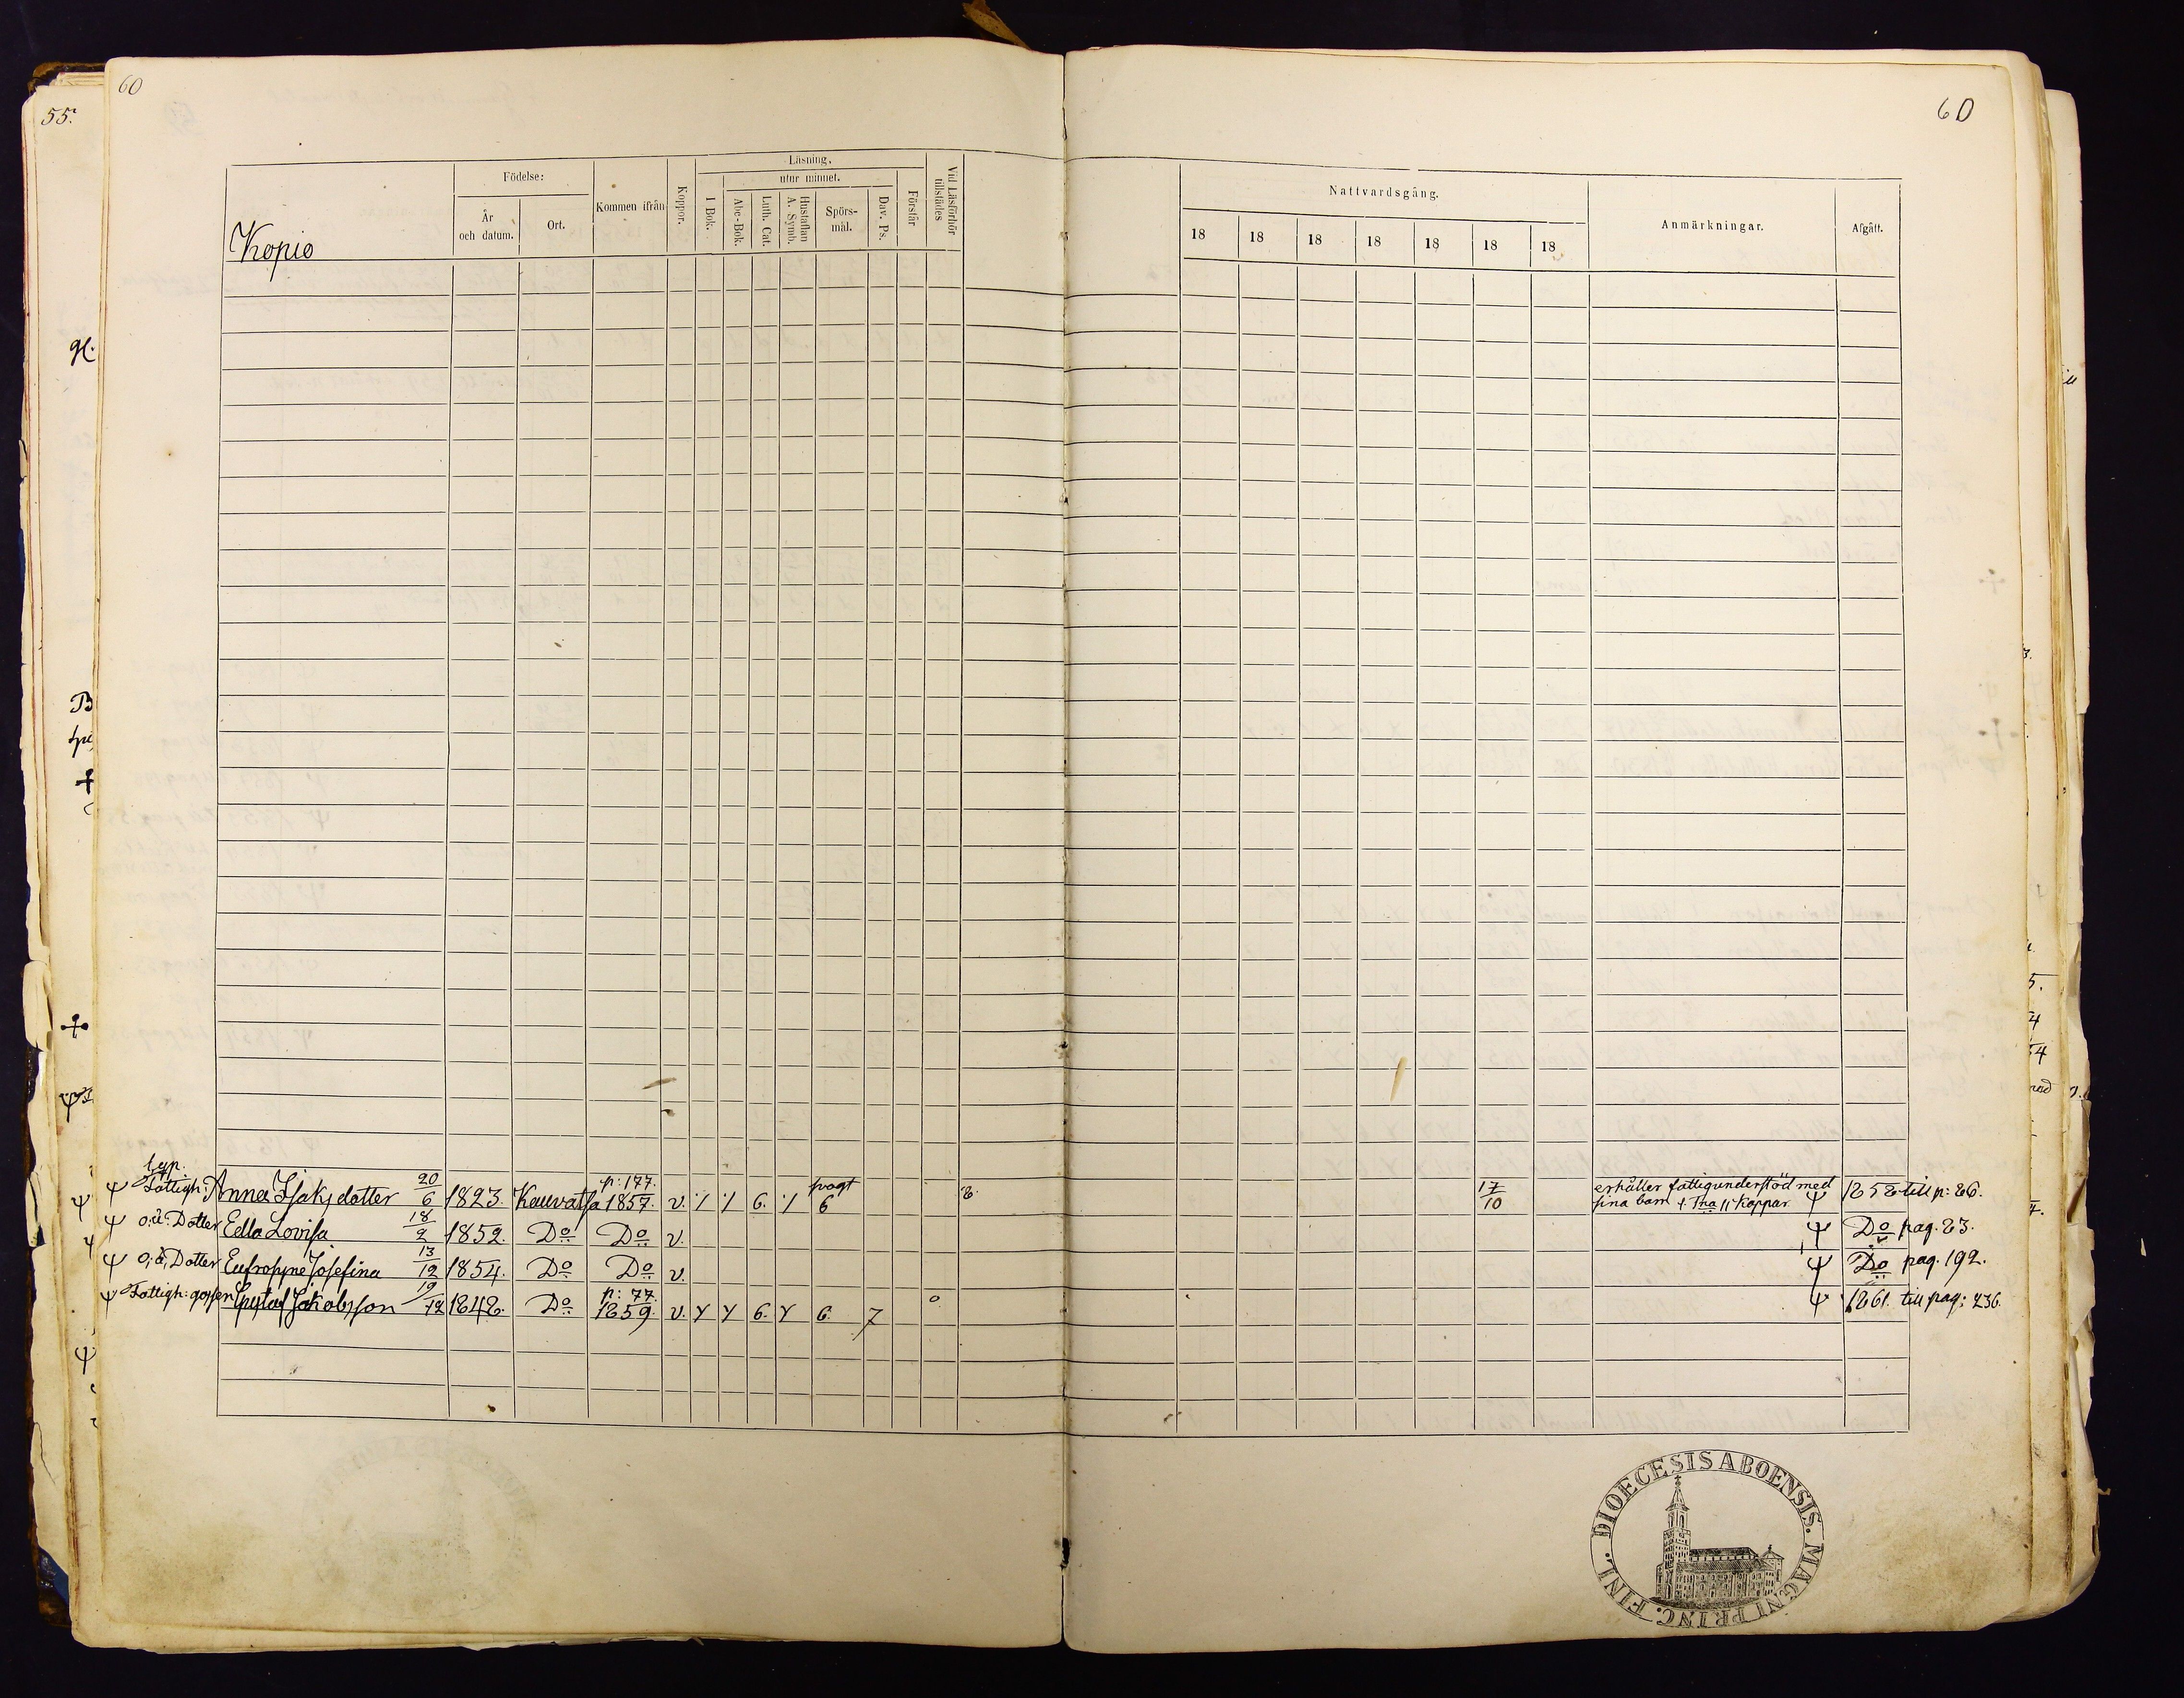 60
55.
60
Kopio
Födelse:
År och datum.
Ort.
Kommen ifrån
Koppor.
Läsning.
I Bok.
utur minnet.
Abc-Bok.
Luth. Cat.
Hustaflan A. Symb.
Spörs-mål.
Dav. Ps.
Förstår
Vid Läsförhör tillstädes
Nattvardsgång.
18 18 18 18 18 18 18
Anmärkningar.
Afgått.
Fattigh: Anna Isaksdotter 20/6 1823. Kauvatsa p: 177. 1857. v. 6. 6 17/10 erhåller fattigunderstöd med 1858 till p: 26.
sina barn
o: ä: Dotter Edla Lovisa 18/2 1852. Do Do v. Do pag. 23.
o: ä: Dotter Eufrosyne Josefina 13/12 1854. Do Do v. Do pag. 192.
Fattigh: gossen Gustaf Jakobsson 19/12 1848. Do p: 77. 1859. v. 6. 6. 7 o 1861. till pag: 236.
DIOECESIS ABOENSIS. MAGNI PRINC. FINL.